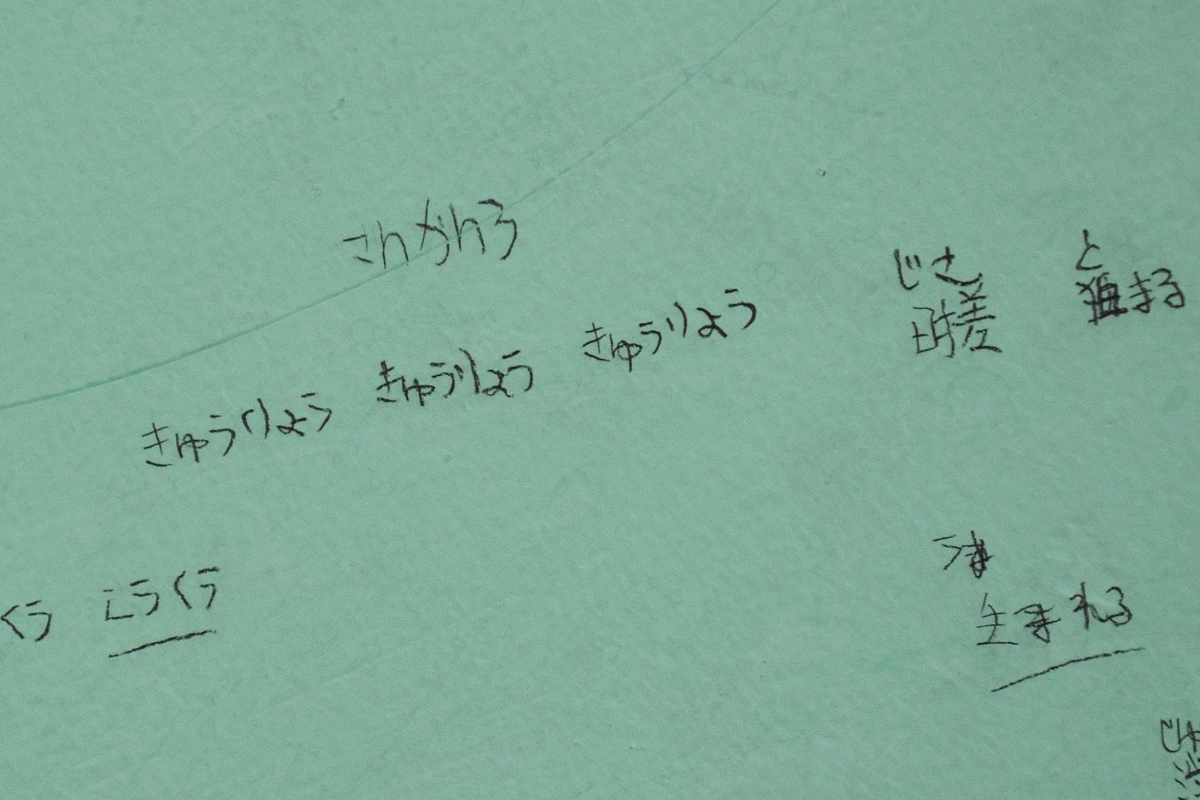 きゅうりょう きゅうりょう きゅうりょう
じさ
時差
と
まる
くう こうくう
うま
生まれる